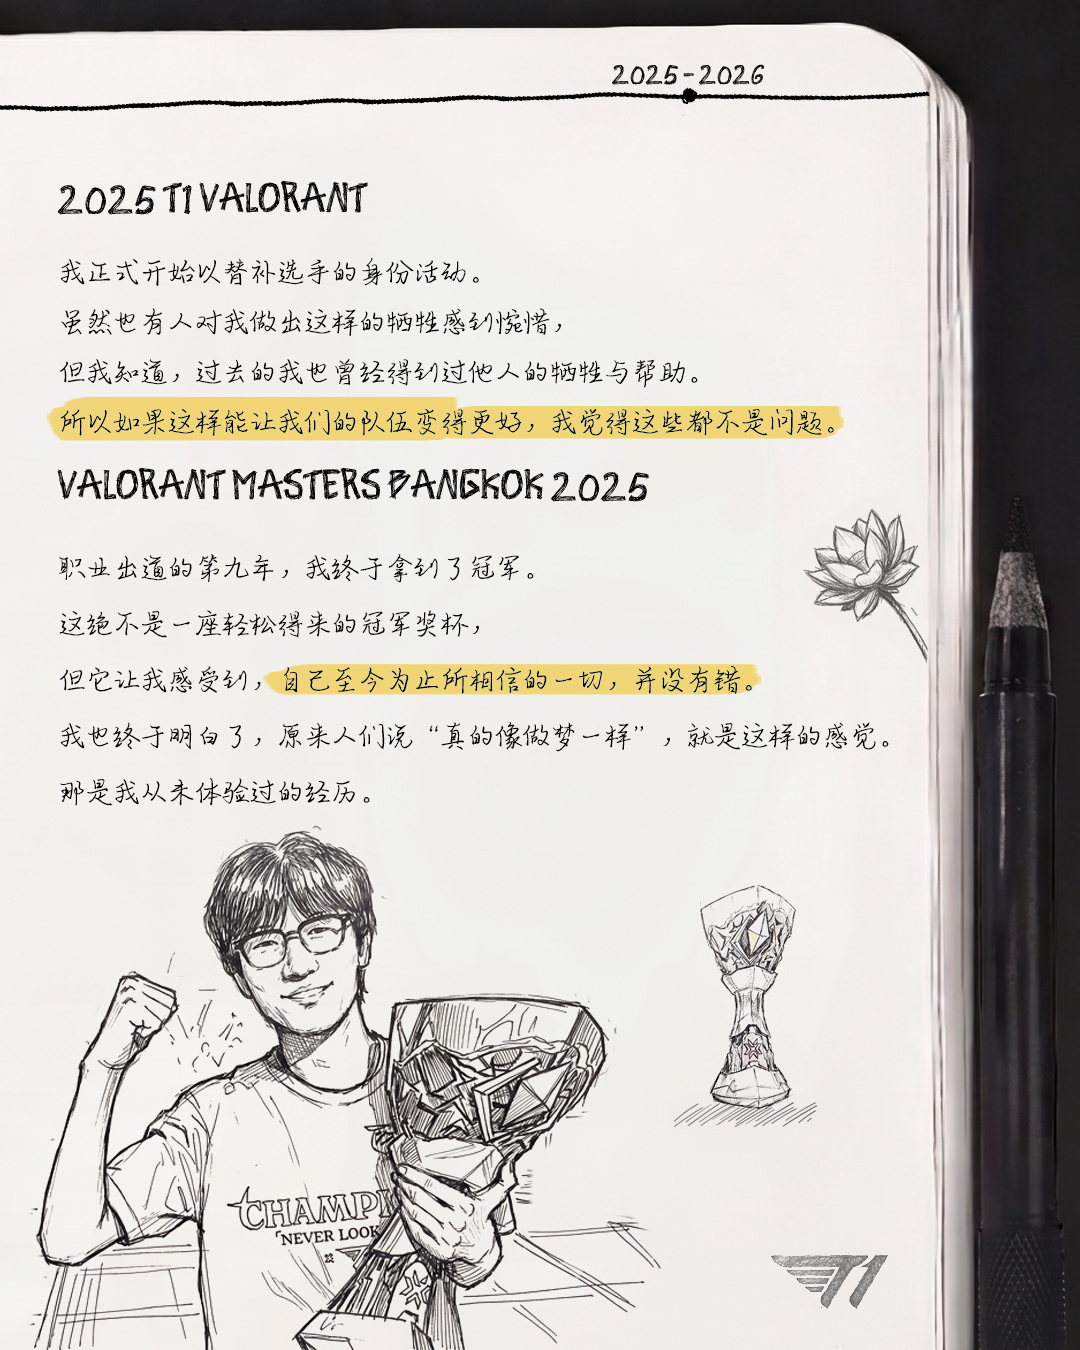 2025-2026
2025 T1 VALORANT
我正式开始以替补选手的身份活动。
虽然也有人对我做出这样的牺牲感到惋惜，
但我知道，过去的我也曾经得到过他人的牺牲与帮助。
所以如果这样能让我们的队伍变得更好，我觉得这些都不是问题。
VALORANT MASTERS BANGKOK 2025
职业出道的第九年，我终于拿到了冠军。
这绝不是一座轻松得来的冠军奖杯，
但它让我感受到，自己至今为止所相信的一切，并没有错。
我也终于明白了，原来人们说“真的像做梦一样”，就是这样的感觉。
那是我从未体验过的经历。
CHAMPI
NEVER LOOK
T1